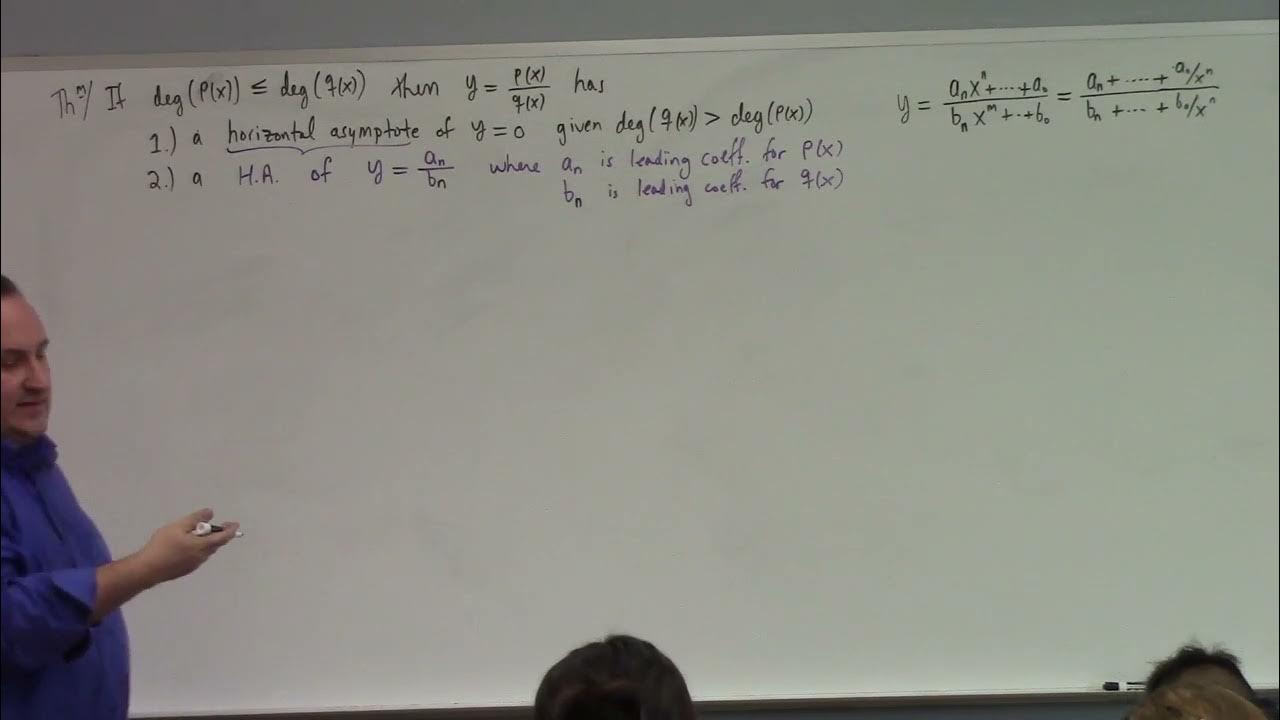 Thᵐ/ If deg(P(x)) ≤ deg(q(x)) then y = P(x)/q(x) has
1.) a horizontal asymptote of y = 0 given deg(q(x)) > deg(P(x))
2.) a H.A. of y = aₙ/bₙ where aₙ is leading coeff. for P(x)
bₙ is leading coeff. for q(x)
y = (aₙxⁿ + ··· + a₀)/(bₙxᵐ + ·· + b₀) = (aₙ + ····· + a₀/xⁿ)/(bₙ + ··· + b₀/xⁿ)